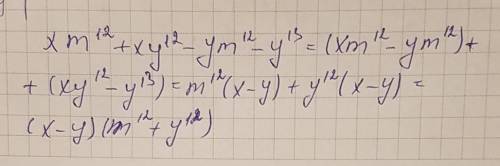 xm¹²+xy¹²-ym¹²-y¹³=(xm¹²-ym¹²)+
+(xy¹²-y¹³)=m¹²(x-y)+y¹²(x-y)=
(x-y)(m¹²+y¹²)